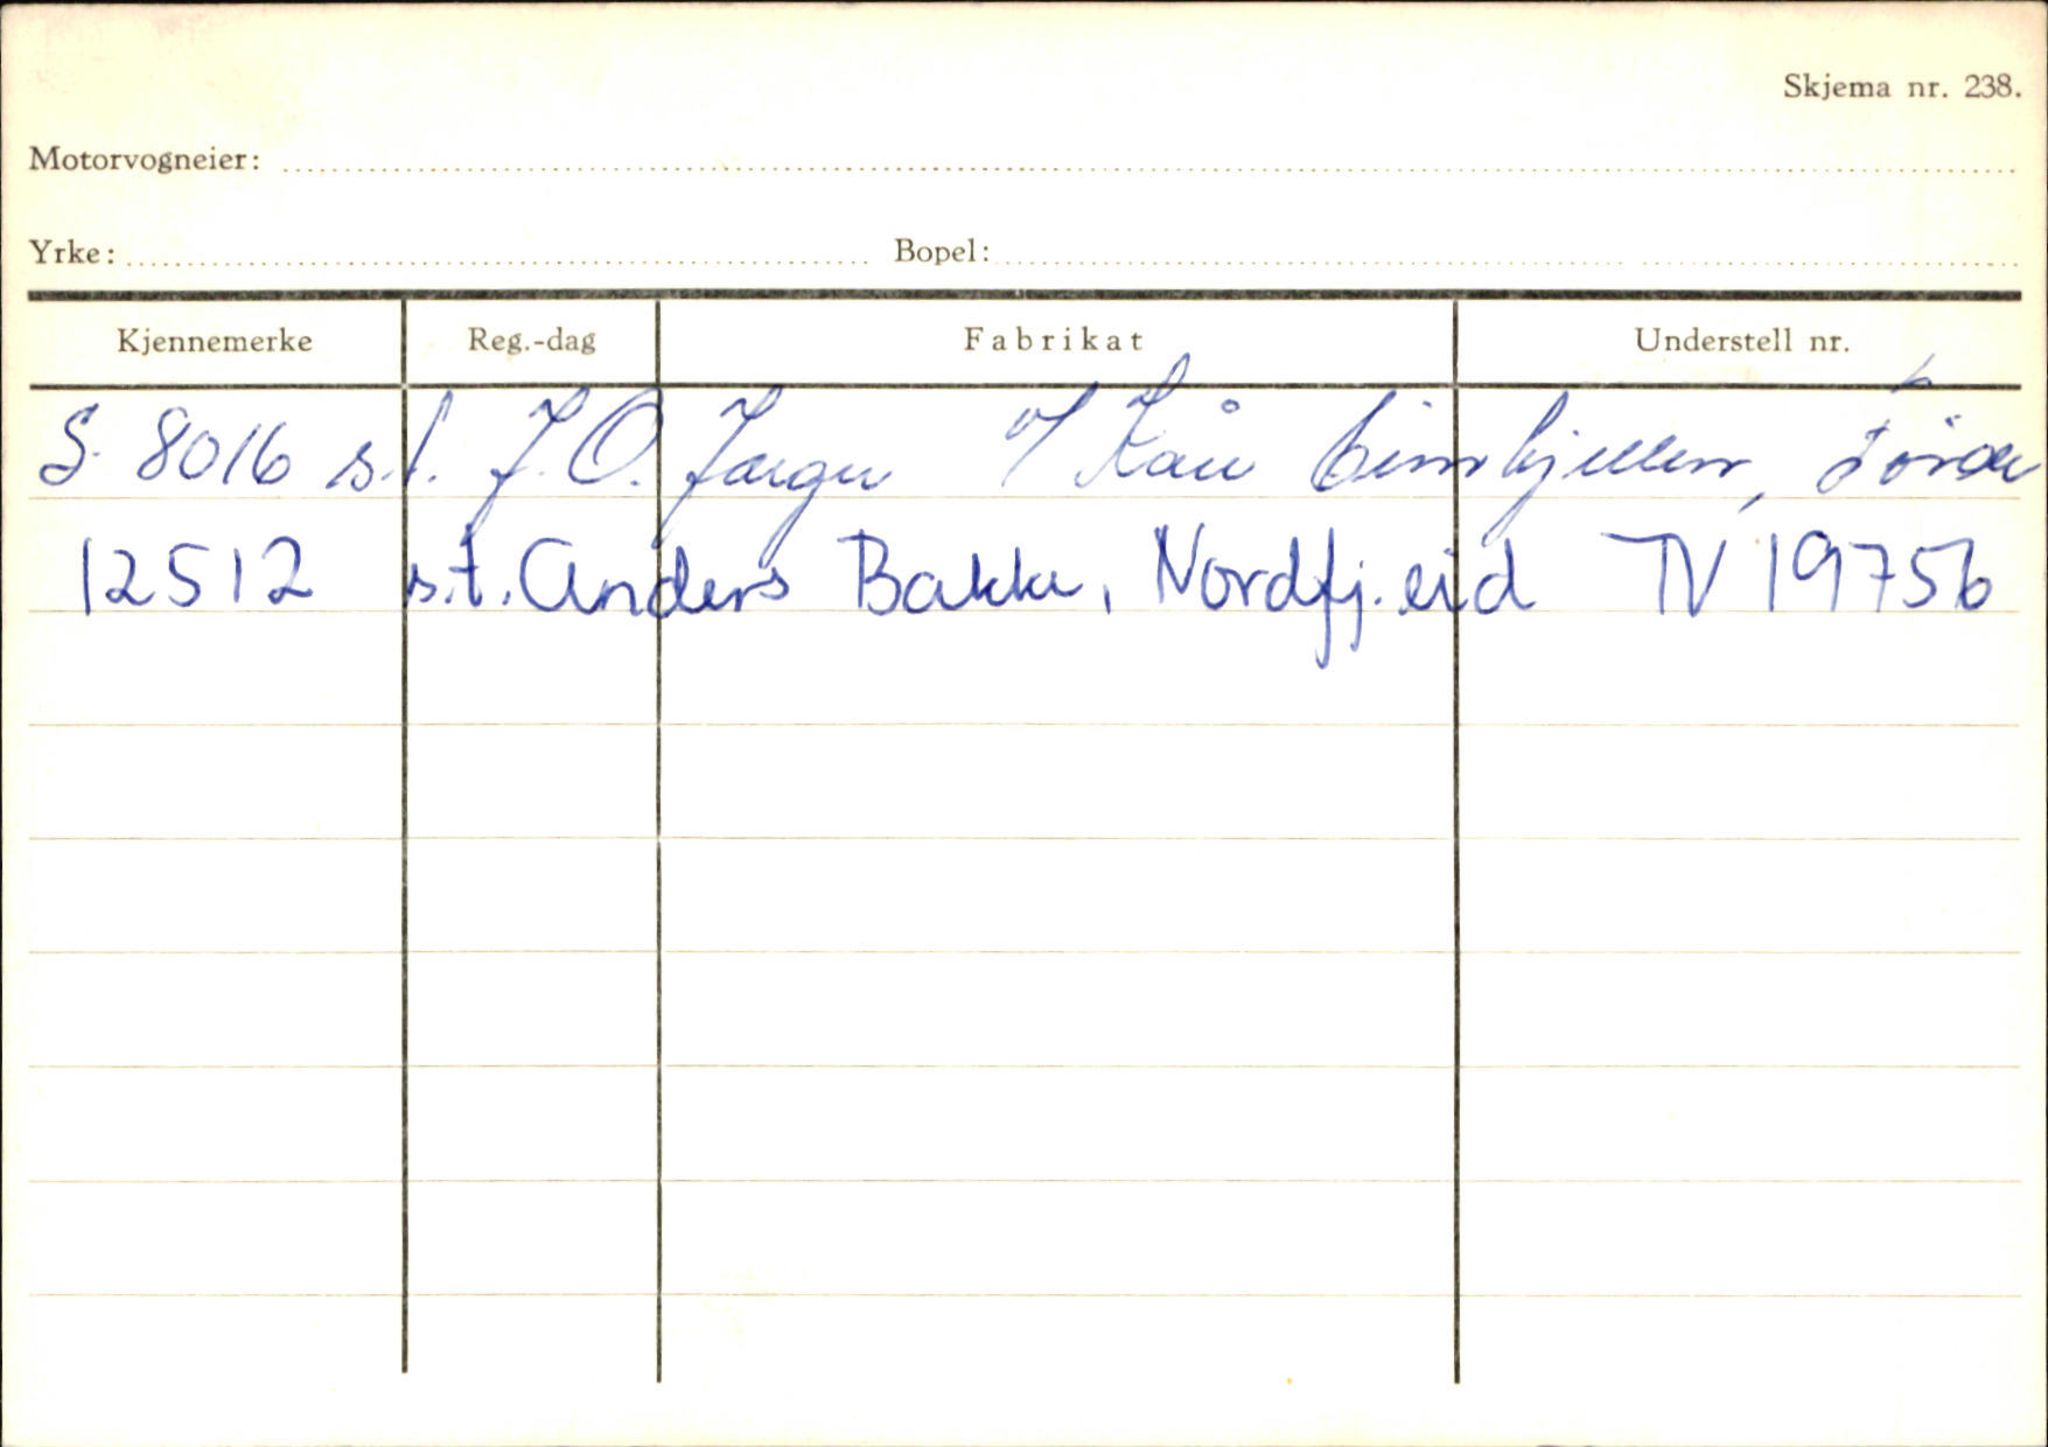 Skjema nr. 238.
Motorvogneier:
Yrke: Bopel:
Kjennemerke Reg.-dag Fabrikat Understell nr.
S. 8016 s.t. J. O. %  Kåre Førde
12512 s.t. Anders Bakke, Nordfj.eid TV 19756